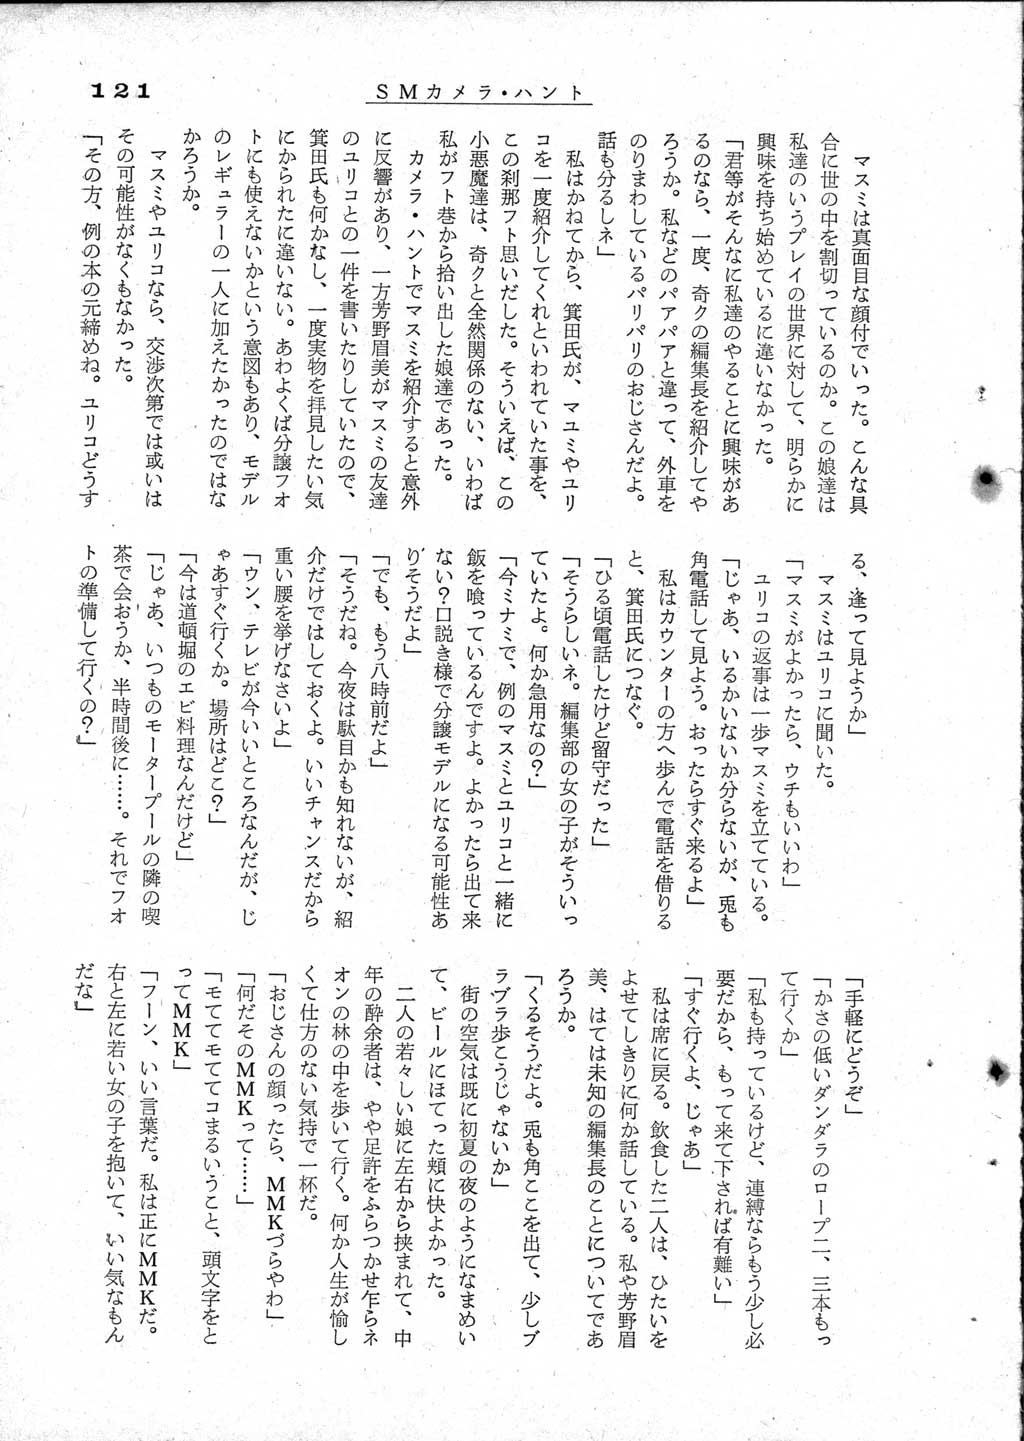 121
SMカメラ・ハント
マスミは真面目な顔付でいった。こんな具
合に世の中を割切っているのか。この娘達は
私達のいうプレイの世界に対して、明らかに
興味を持ち始めているに違いなかった。
「君等がそんなに私達のやることに興味があ
るのなら、一度、奇クの編集長を紹介してや
ろうか。私などのパアパアと違って、外車を
のりまわしているパリパリのおじさんだよ。
話も分るしネ」
私はかねてから、箕田氏が、マユミやユリ
コを一度紹介してくれといわれていた事を、
この刹那フト思いだした。そういえば、この
小悪魔達は、奇クと全然関係のない、いわば
私がフト巷から拾い出した娘達であった。
カメラ・ハントでマスミを紹介すると意外
に反響があり、一方芳野眉美がマスミの友達
のユリコとの一件を書いたりしていたので、
箕田氏も何かなし、一度実物を拝見したい気
にかられたに違いない。あわよくば分譲フォ
トにも使えないかという意図もあり、モデル
のレギュラーの一人に加えたかったのではな
かろうか。
マスミやユリコなら、交渉次第では或いは
その可能性がなくもなかった。
「その方、例の本の元締めね。ユリコどうす
る、逢って見ようか」
マスミはユリコに聞いた。
「マスミがよかったら、ウチもいいわ」
ユリコの返事は一歩マスミを立てている。
「じゃあ、いるかいないか分らないが、兎も
角電話して見よう。おったらすぐ来るよ」
私はカウンターの方へ歩んで電話を借りる
と、箕田氏につなぐ。
「ひる頃電話したけど留守だった」
「そうらしいネ。編集部の女の子がそういっ
ていたよ。何か急用なの？」
「今ミナミで、例のマスミとユリコと一緒に
飯を喰っているんですよ。よかったら出て来
ない？口説き様で分譲モデルになる可能性あ
りそうだよ」
「でも、もう八時前だよ」
「そうだね。今夜は駄目かも知れないが、紹
介だけではしておくよ。いいチャンスだから
重い腰を挙げなさいよ」
「ウン、テレビが今いいところなんだが、じ
ゃあすぐ行くか。場所はどこ？」
「今は道頓堀のエビ料理なんだけど」
「じゃあ、いつものモータープールの隣の喫
茶で会おうか、半時間後に……。それでフォ
トの準備して行くの？」
「手軽にどうぞ」
「かさの低いダンダラのロープ二、三本もっ
て行くか」
「私も持っているけど、連縛ならもう少し必
要だから、もって来て下されば有難い」
「すぐ行くよ、じゃあ」
私は席に戻る。飲食した二人は、ひたいを
よせてしきりに何か話している。私や芳野眉
美、はては未知の編集長のことについてであ
ろうか。
「くるそうだよ。兎も角ここを出て、少しブ
ラブラ歩こうじゃないか」
街の空気は既に初夏の夜のようになまめい
て、ビールにほてった頬に快よかった。
二人の若々しい娘に左右から挟まれて、中
年の酔余者は、やや足許をふらつかせ乍らネ
オンの林の中を歩いて行く。何か人生が愉し
くて仕方のない気持で一杯だ。
「おじさんの顔ったら、MMKづらやわ」
「何だそのMMKって……」
「モテてモテてコまるいうこと、頭文字をと
ってMMK」
「フーン、いい言葉だ。私は正にMMKだ。
右と左に若い女の子を抱いて、いい気なもん
だな」